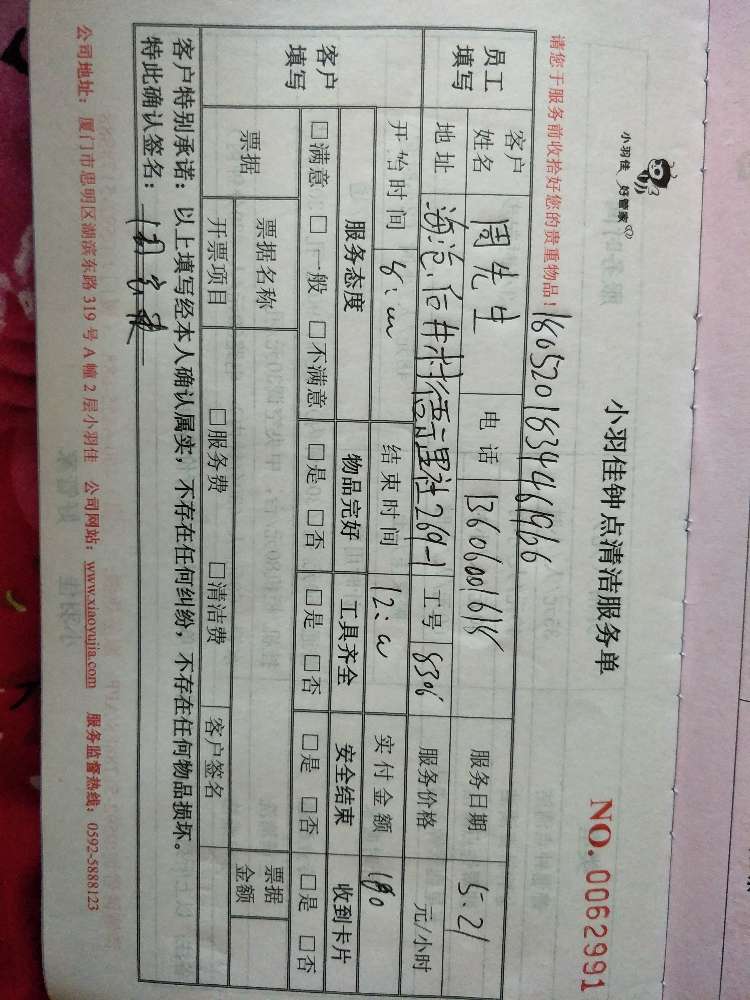 小羽佳 好管家
小羽佳钟点清洁服务单
NO. 0062991
请您于服务前收拾好您的贵重物品！
员工填写 客户姓名 周先生 电话 13606001618 服务日期 5.21
地址 海沧后井村 里社269-1 工号 8306 服务价格 元/小时
开始时间 8: 结束时间 12: 实付金额 180
客户填写 服务态度 物品完好 工具齐全 安全结束 收到卡片
□满意 □一般 □不满意 □是 □否 □是 □否 □是 □否 □是 □否
票据 票据名称 客户签名 票据金额
开票项目 □服务费 □清洁费
客户特别承诺：以上填写经本人确认属实，不存在任何纠纷，不存在任何物品损坏。
特此确认签名：
公司地址：厦门市思明区湖滨东路319号A幢2层小羽佳 公司网站：www.xiaoyujia.com 服务监督热线：0592-5888123